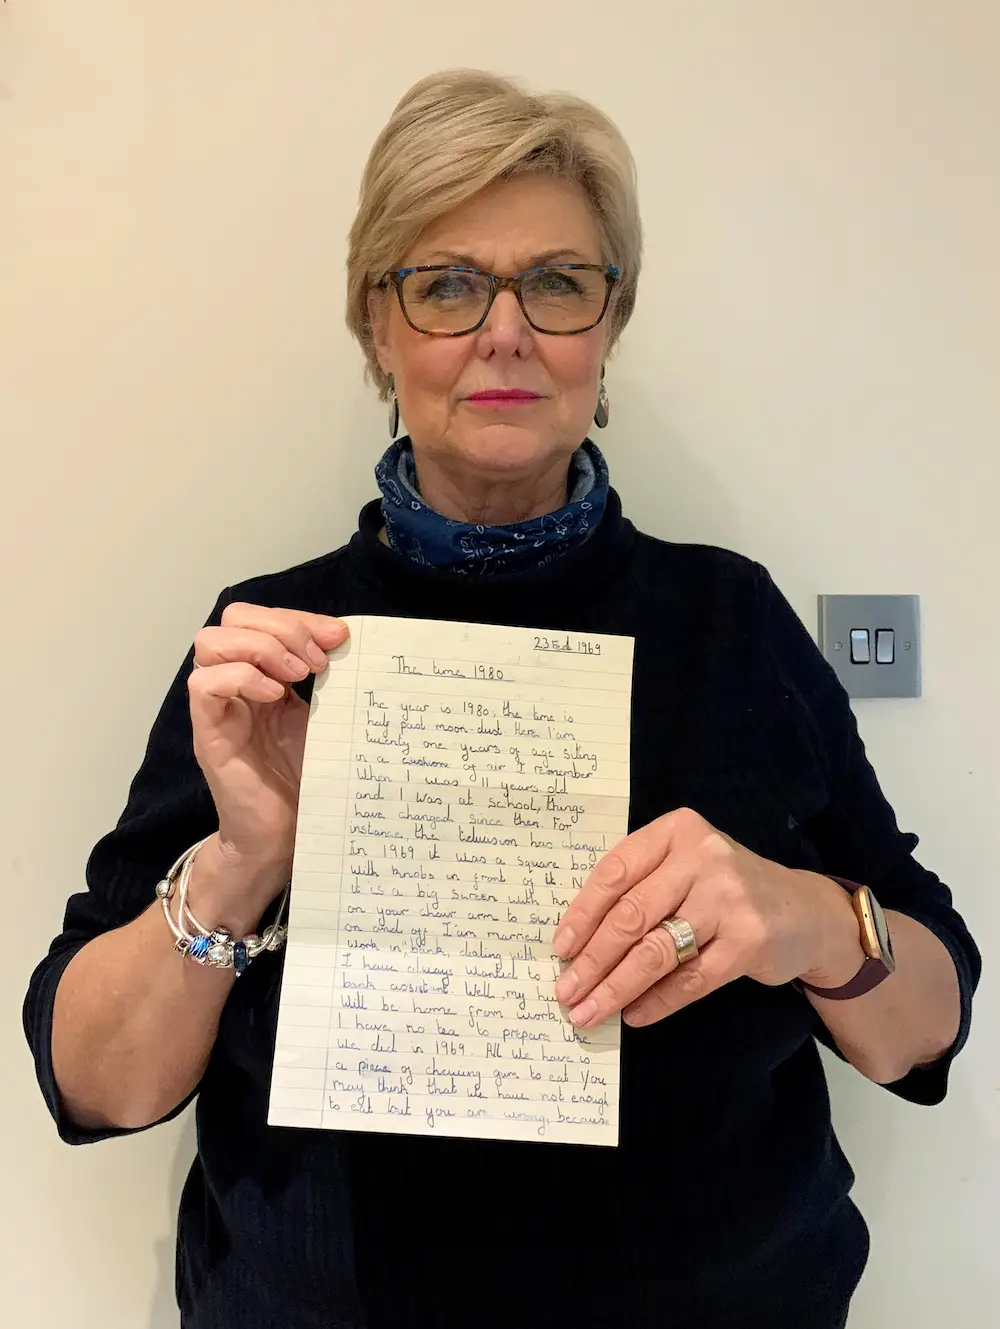 23 Feb 1969
The time 1980
The year is 1980, the time is
half past moon-dust. Here I'am
twenty one years of age siting
in a cushione of air I remember
When I was 11 years old
and I was at school, things
have changed since then. For
instance, the television has changed
In 1969 it was a square box
with knobs in front of it. N
it is a big screen with kn
on your chair arm to swit
on and off I'am married
work in bank, dealing with
I have always wanted to
bank assistant. Well, my hu
will be home from work,
I have no tea to prepare like
we did in 1969. All we have is
a piece of chewing gum to eat You
may think that we have not enough
to eat but you are wrong, because